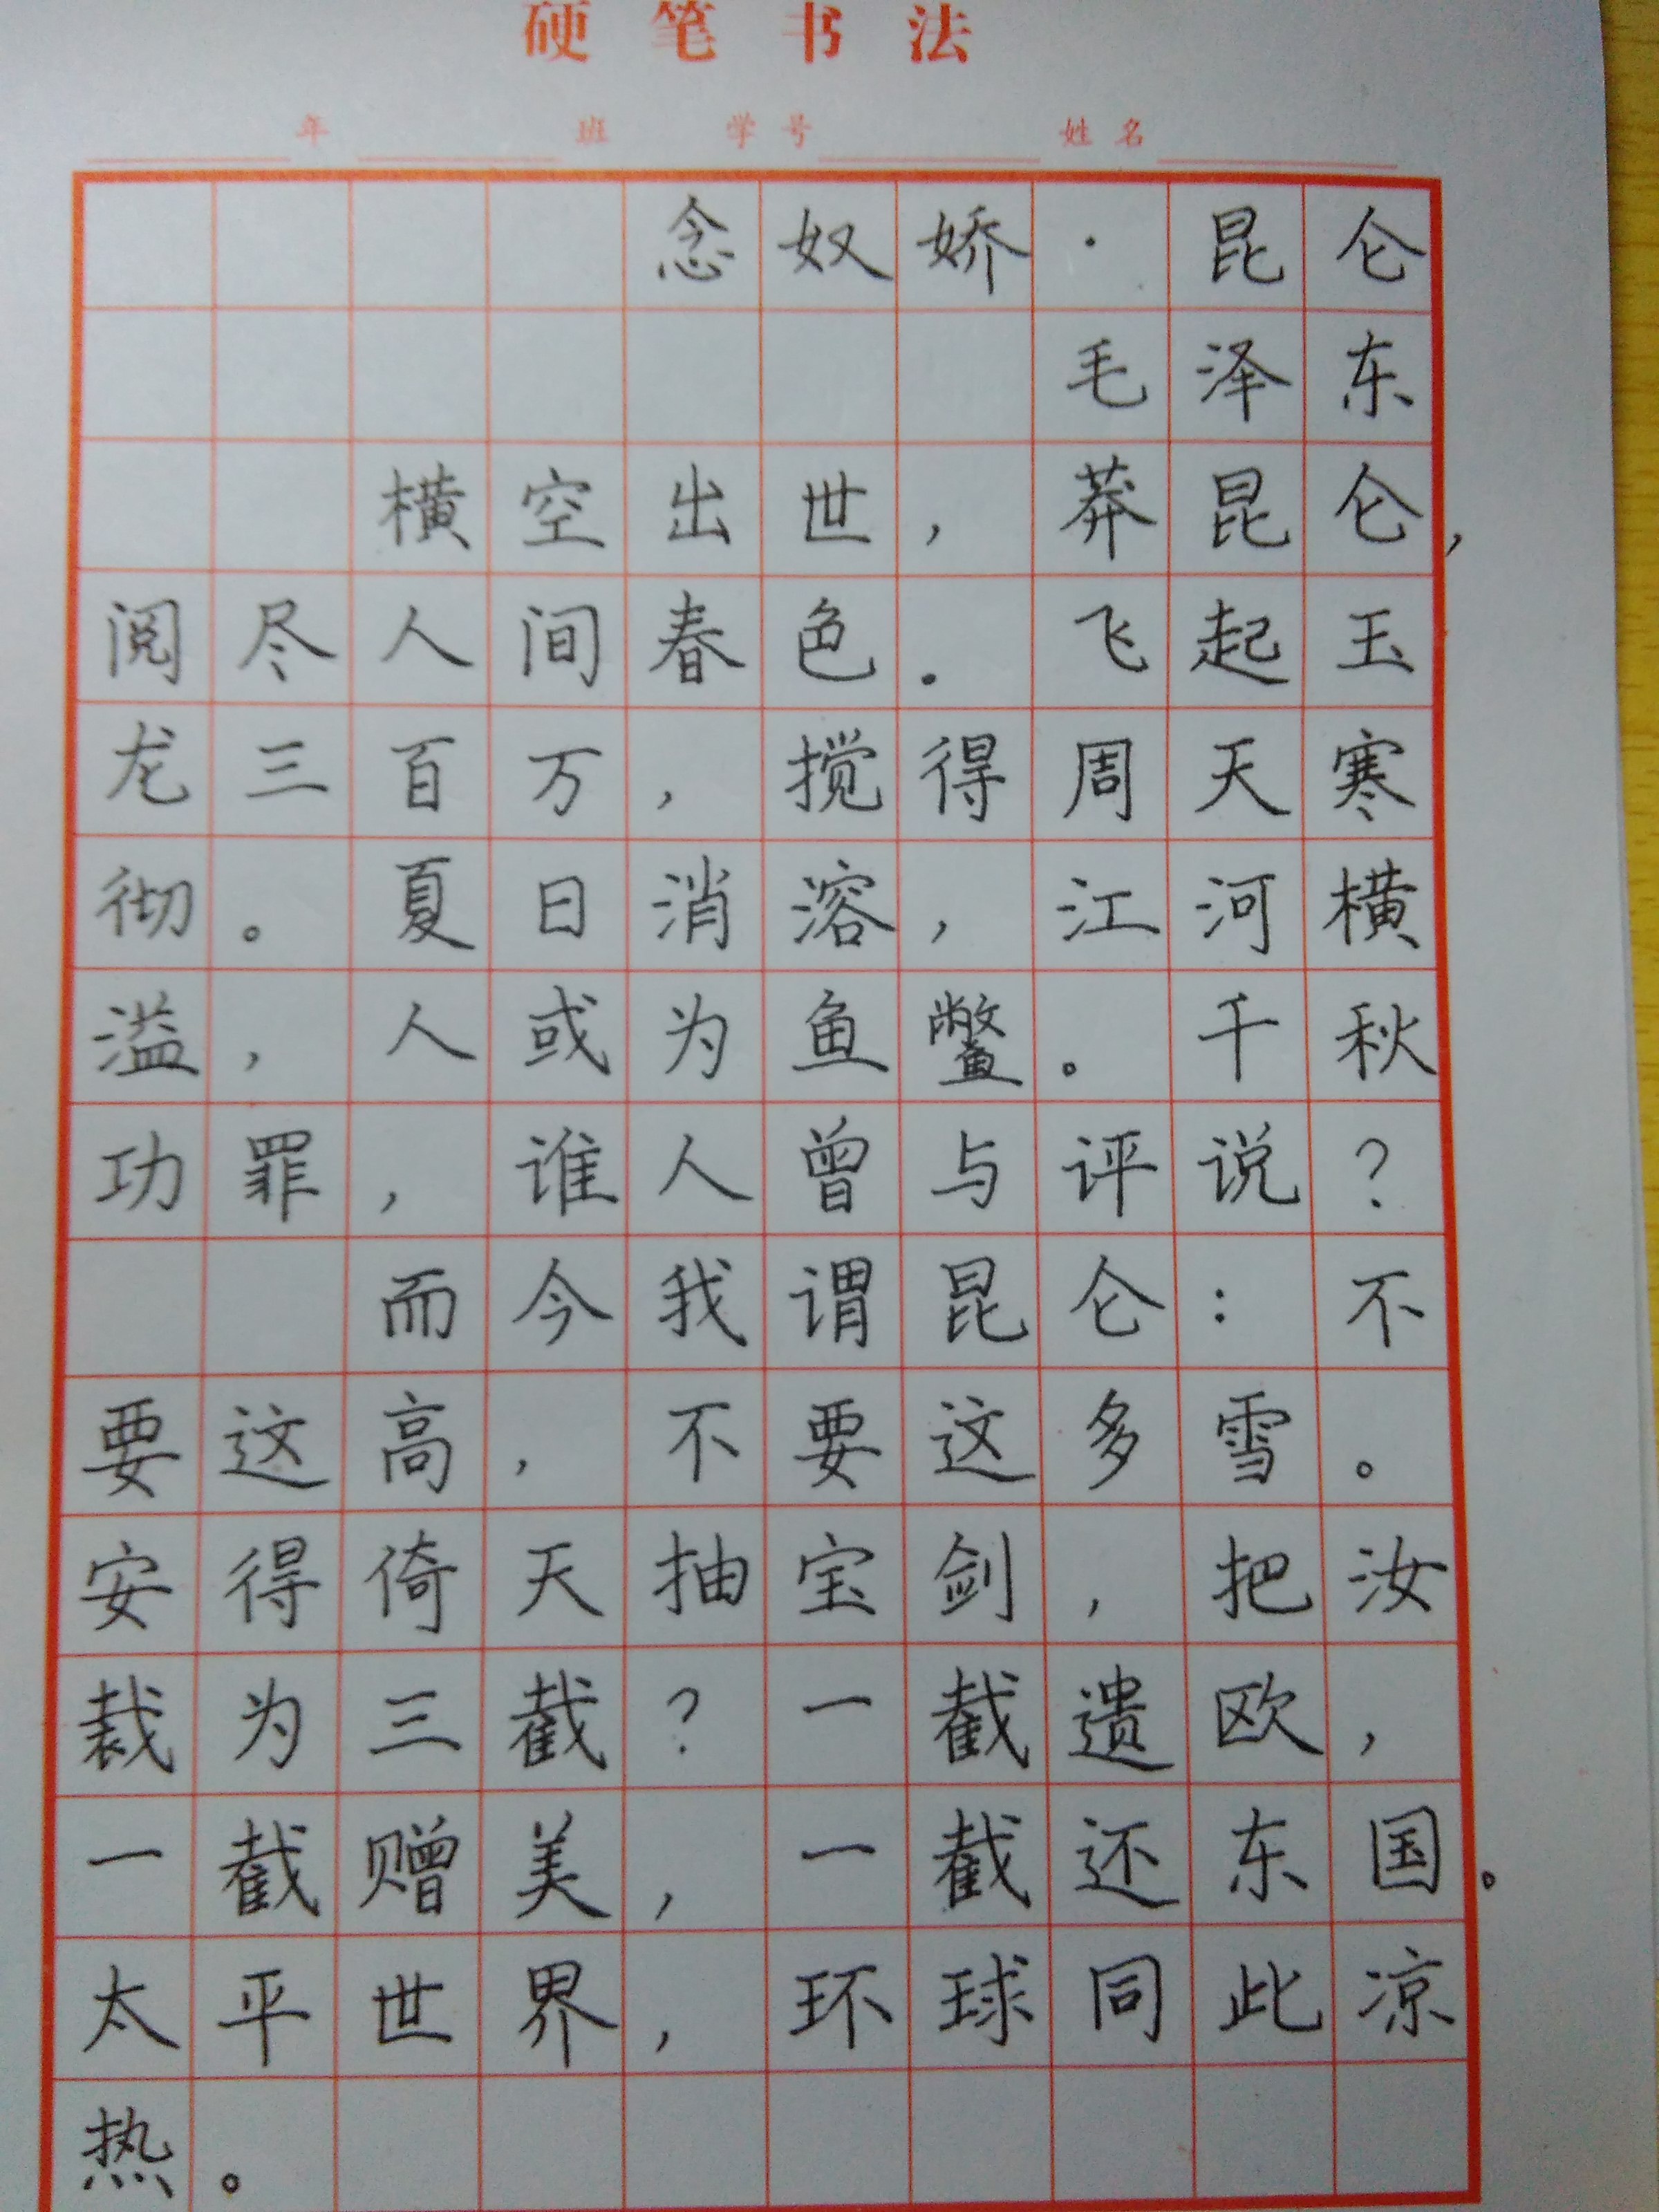 硬笔书法
年 班 学号 姓名
念奴娇·昆仑
毛泽东
横空出世，莽昆仑，
阅尽人间春色．飞起玉
龙三百万，搅得周天寒
彻。夏日消溶，江河横
溢，人或为鱼鳖。千秋
功罪，谁人曾与评说？
而今我谓昆仑：不
要这高，不要这多雪。
安得倚天抽宝剑，把汝
裁为三截？一截遗欧，
一截赠美，一截还东国。
太平世界，环球同此凉
热。